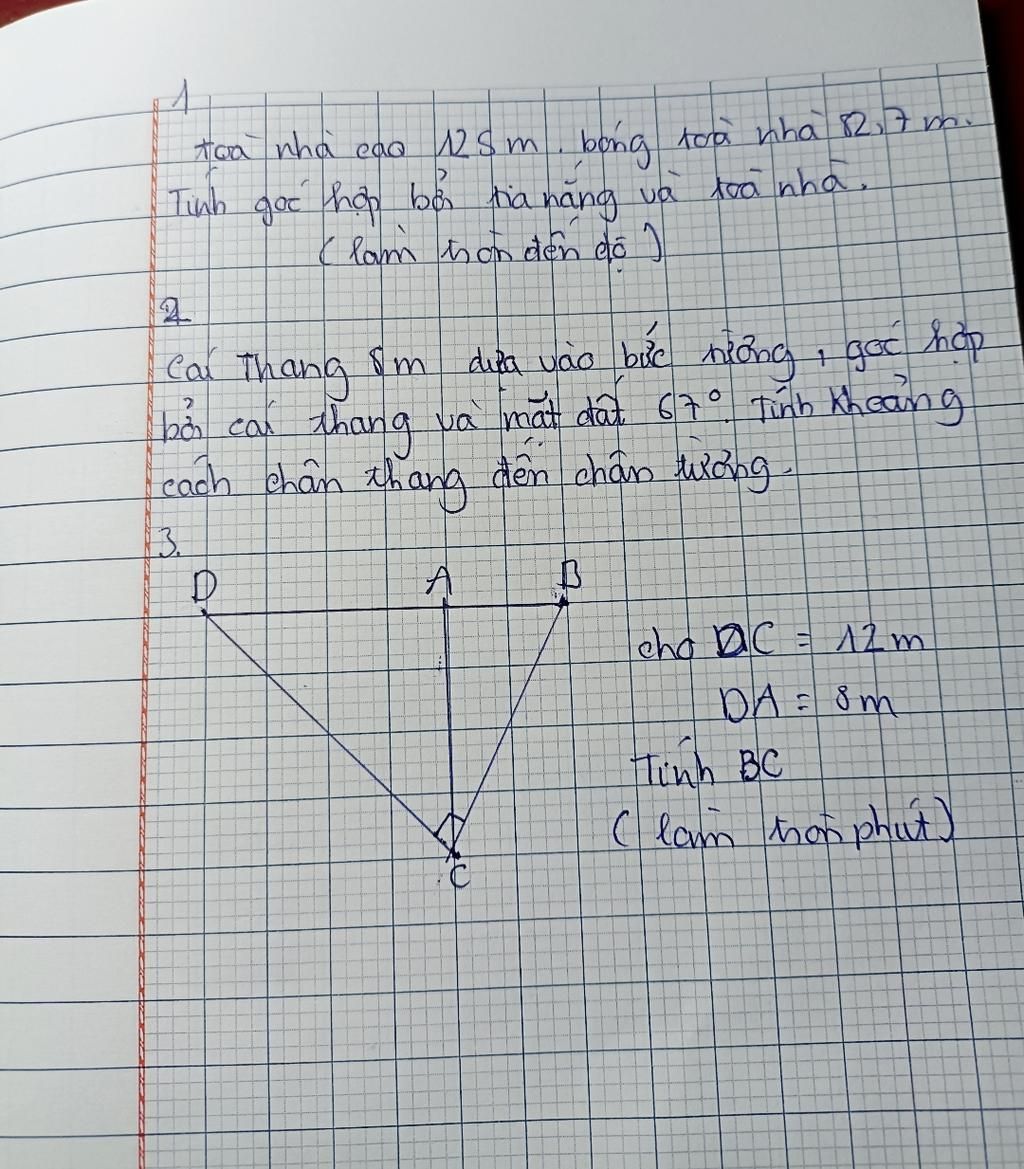 1
toà nhà cao 128m. bóng toà nhà 82,7m.
Tính góc hợp bởi tia nắng và toà nhà.
(làm tròn đến độ)
2
Cái Thang 8m dựa vào bức tường, góc hợp
bởi cái thang và mặt đất 67° Tính khoảng
cách chân thang đến chân tường.
3.
D A B
cho DC = 12m
DA = 8m
Tính BC
(làm tròn phút)
C